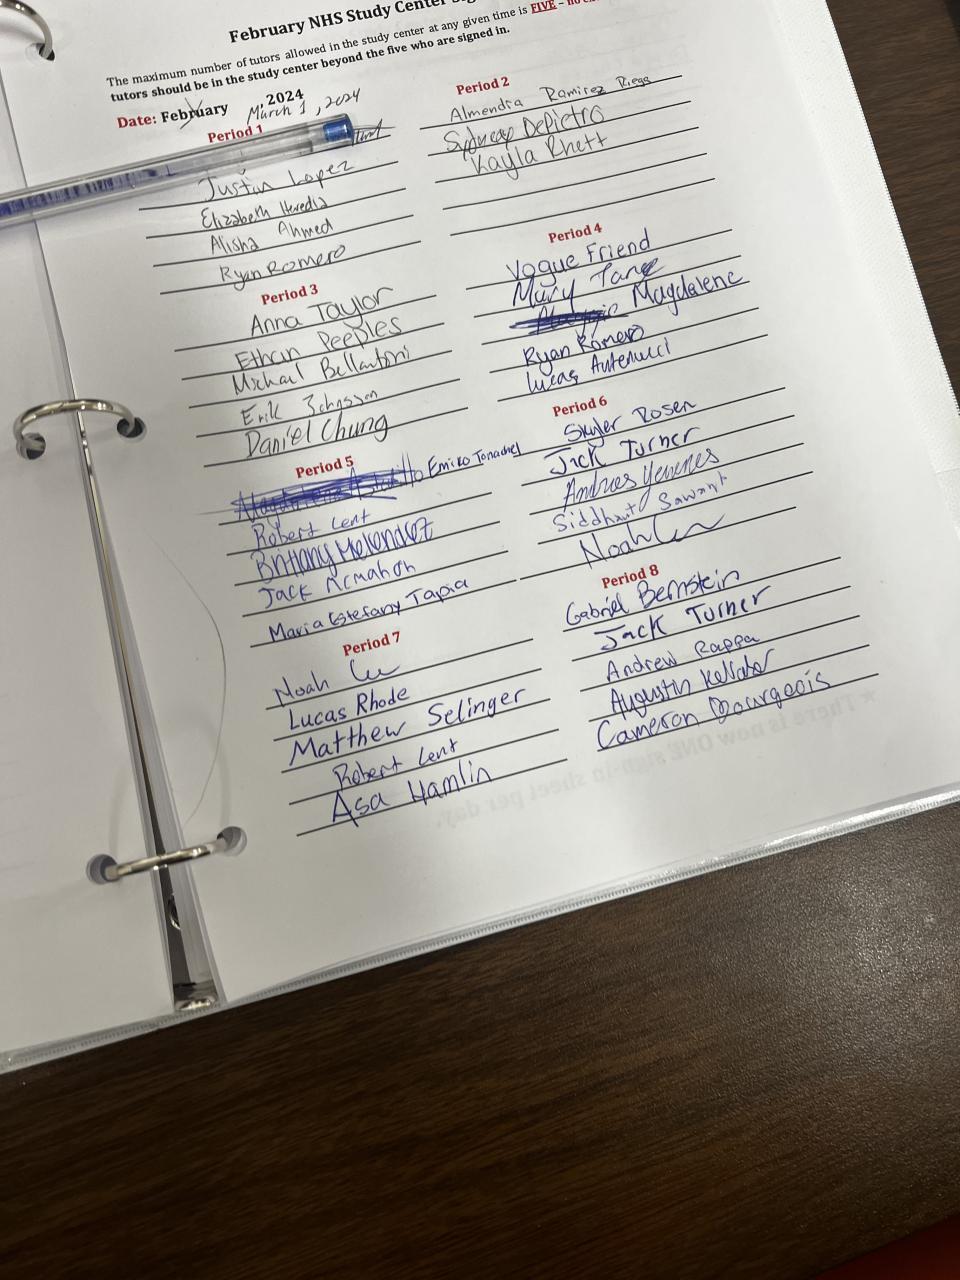 February NHS Study Center
The maximum number of tutors allowed in the study center at any given time is FIVE – no
tutors should be in the study center beyond the five who are signed in.
Date: February , 2024
March 1, 2024
Period 1
Justin Lopez
Elizabeth Heredia
Alisha Ahmed
Ryan Romero
Period 2
Almendra Ramirez Riega
Sydney DePietro
Kayla Rhett
Period 3
Anna Taylor
Ethan Peeples
Michael Bellantoni
Erik Johnsson
Daniel Chung
Period 4
Vogue Friend
Mary Jane
Magdalene
Ryan Romero
Lucas Autenucci
Period 5
Emiko Tonachel
Robert Lent
Brittany Melendez
Jack Mcmahon
Maria Estefany Tapia
Period 6
Skyler Rosen
Jack Turner
Andres Yevenes
Siddhant Sawant
Noah
Period 7
Noah
Lucas Rhode
Matthew Selinger
Robert Lent
Asa Hamlin
Period 8
Gabriel Bernstein
Jack Turner
Andrew Rappa
Augustin
Cameron Bourgeois
★ There is now ONE sign-in sheet per day.